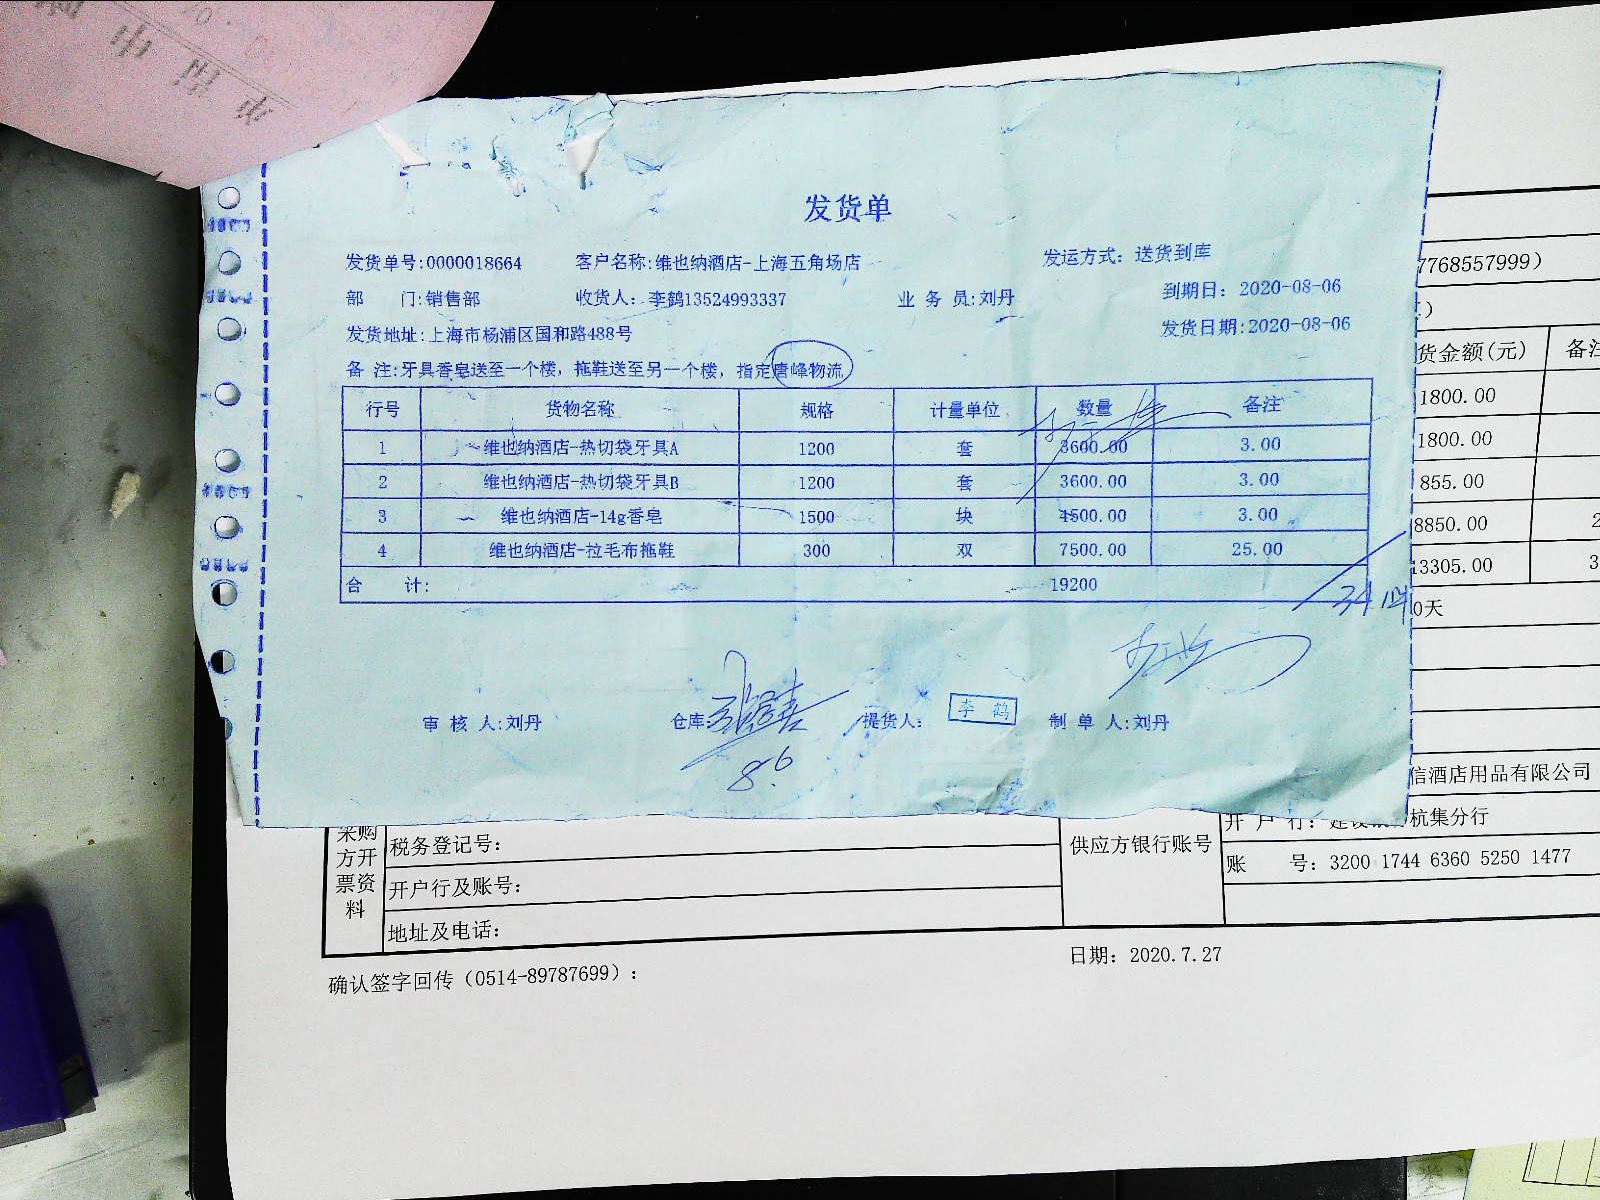 发货单
发货单号:0000018664 客户名称:维也纳酒店-上海五角场店 发运方式: 送货到库
部 门:销售部 收货人: 李鹤13524993337 业 务 员:刘丹 到期日: 2020-08-06
发货地址:上海市杨浦区国和路488号 发货日期:2020-08-06
备 注:牙具香皂送至一个楼, 拖鞋送至另一个楼, 指定唐峰物流
行号 货物名称 规格 计量单位 数量 备注
1 维也纳酒店-热切袋牙具A 1200 套 3600.00 3.00
2 维也纳酒店-热切袋牙具B 1200 套 3600.00 3.00
3 维也纳酒店-14g香皂 1500 块 4500.00 3.00
4 维也纳酒店-拉毛布拖鞋 300 双 7500.00 25.00
合 计: 19200
审 核 人:刘丹 仓库: 提货人: 李 鹤 制 单 人:刘丹
8.6
7768557999)
货金额(元) 备注
1800.00
1800.00
855.00
8850.00 2
13305.00 3
0天
信酒店用品有限公司
开 户 行: 杭集分行
账 号: 3200 1744 6360 5250 1477
供应方银行账号
采购方开票资料
税务登记号:
开户行及账号:
地址及电话:
日期: 2020.7.27
确认签字回传(0514-89787699):